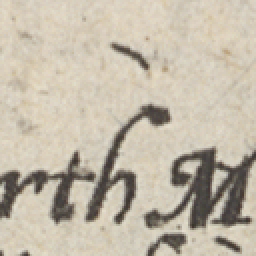 rth M